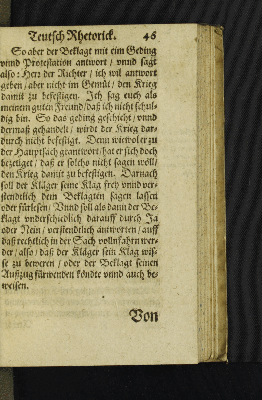 Teutsch Rhetorick. 46
So aber der Beklagt mit eim Geding
vnnd Protestation antwort / vnnd sagt
also: Herr der Richter / ich wil antwort
geben / aber nicht im Gemüt / den Krieg
damit zu befestigen. Ich sag euch als
meinem guten Freund / daß ich nicht schul-
dig bin. So das geding geschicht / vnnd
dermaß gehandelt / würdt der Krieg dar-
durch nicht befestigt. Denn wiewol er zu
der Hauptsach geantwort / hat er sich doch
bezeuget / daß er solchs nicht sagen wöll /
den Krieg damit zu befestigen. Darnach
soll der Kläger seine Klag frey vnnd ver-
stendtlich dem Beklagten sagen lassen
oder fürlesen / Vnnd soll als dann der Be-
klagt vnderschiedlich darauff durch Ja
oder Nein / verstendtlich antworten / auff
daß rechtlich in der Sach vollnfahrn wer-
de / also / daß der Kläger sein Klag wis-
se zu beweren / oder der Beklagt seinen
Außzug fürwenden köndte vnnd auch be-
weisen.
Von